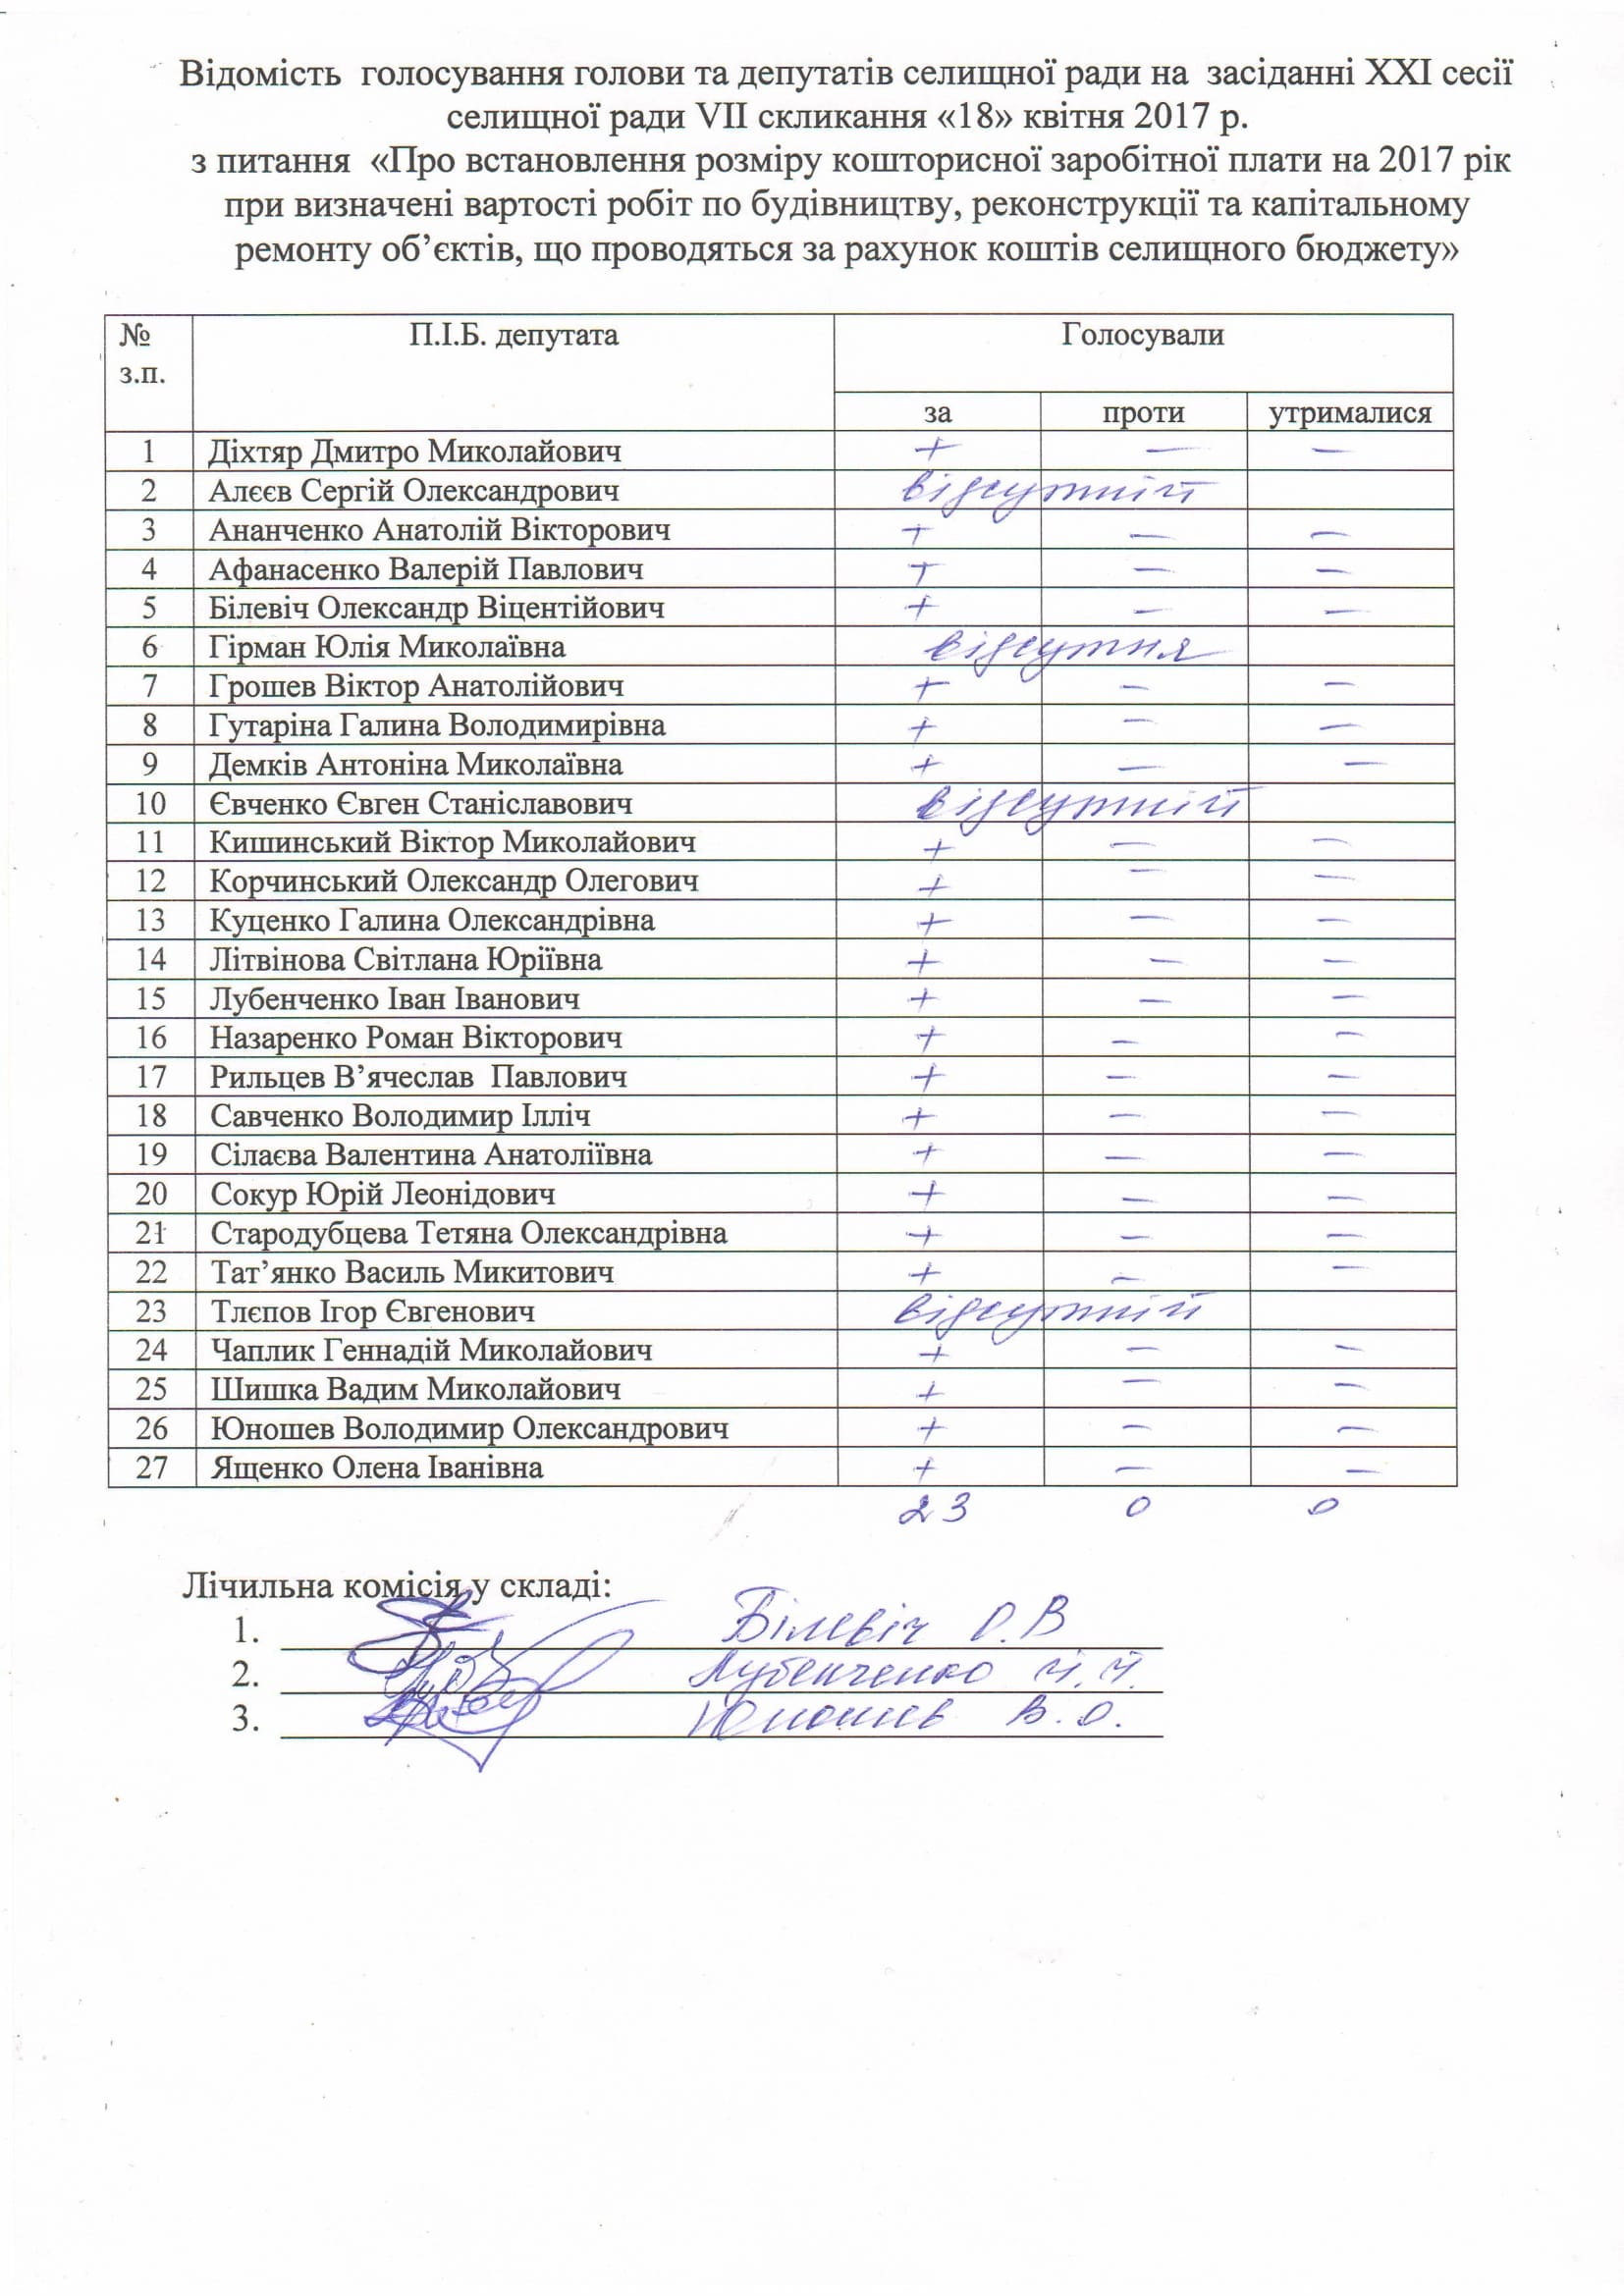 Відомість голосування голови та депутатів селищної ради на засіданні XXI сесії
селищної ради VII скликання «18» квітня 2017 р.
з питання «Про встановлення розміру кошторисної заробітної плати на 2017 рік
при визначені вартості робіт по будівництву, реконструкції та капітальному
ремонту об’єктів, що проводяться за рахунок коштів селищного бюджету»
№ з.п. П.І.Б. депутата Голосували
за проти утрималися
1 Діхтяр Дмитро Миколайович + — —
2 Алєєв Сергій Олександрович відсутній
3 Ананченко Анатолій Вікторович + — —
4 Афанасенко Валерій Павлович + — —
5 Білевіч Олександр Віцентійович + — —
6 Гірман Юлія Миколаївна відсутня
7 Грошев Віктор Анатолійович + — —
8 Гутаріна Галина Володимирівна + — —
9 Демків Антоніна Миколаївна + — —
10 Євченко Євген Станіславович відсутній
11 Кишинський Віктор Миколайович + — —
12 Корчинський Олександр Олегович + — —
13 Куценко Галина Олександрівна + — —
14 Літвінова Світлана Юріївна + — —
15 Лубенченко Іван Іванович + — —
16 Назаренко Роман Вікторович + — —
17 Рильцев В’ячеслав Павлович + — —
18 Савченко Володимир Ілліч + — —
19 Сілаєва Валентина Анатоліївна + — —
20 Сокур Юрій Леонідович + — —
21 Стародубцева Тетяна Олександрівна + — —
22 Тат’янко Василь Микитович + — —
23 Тлєпов Ігор Євгенович відсутній
24 Чаплик Геннадій Миколайович + — —
25 Шишка Вадим Миколайович + — —
26 Юношев Володимир Олександрович + — —
27 Ященко Олена Іванівна + — —
23 0 0
Лічильна комісія у складі:
1. Білевіч О.В
2. Лубенченко И.И.
3. Юношев В.О.